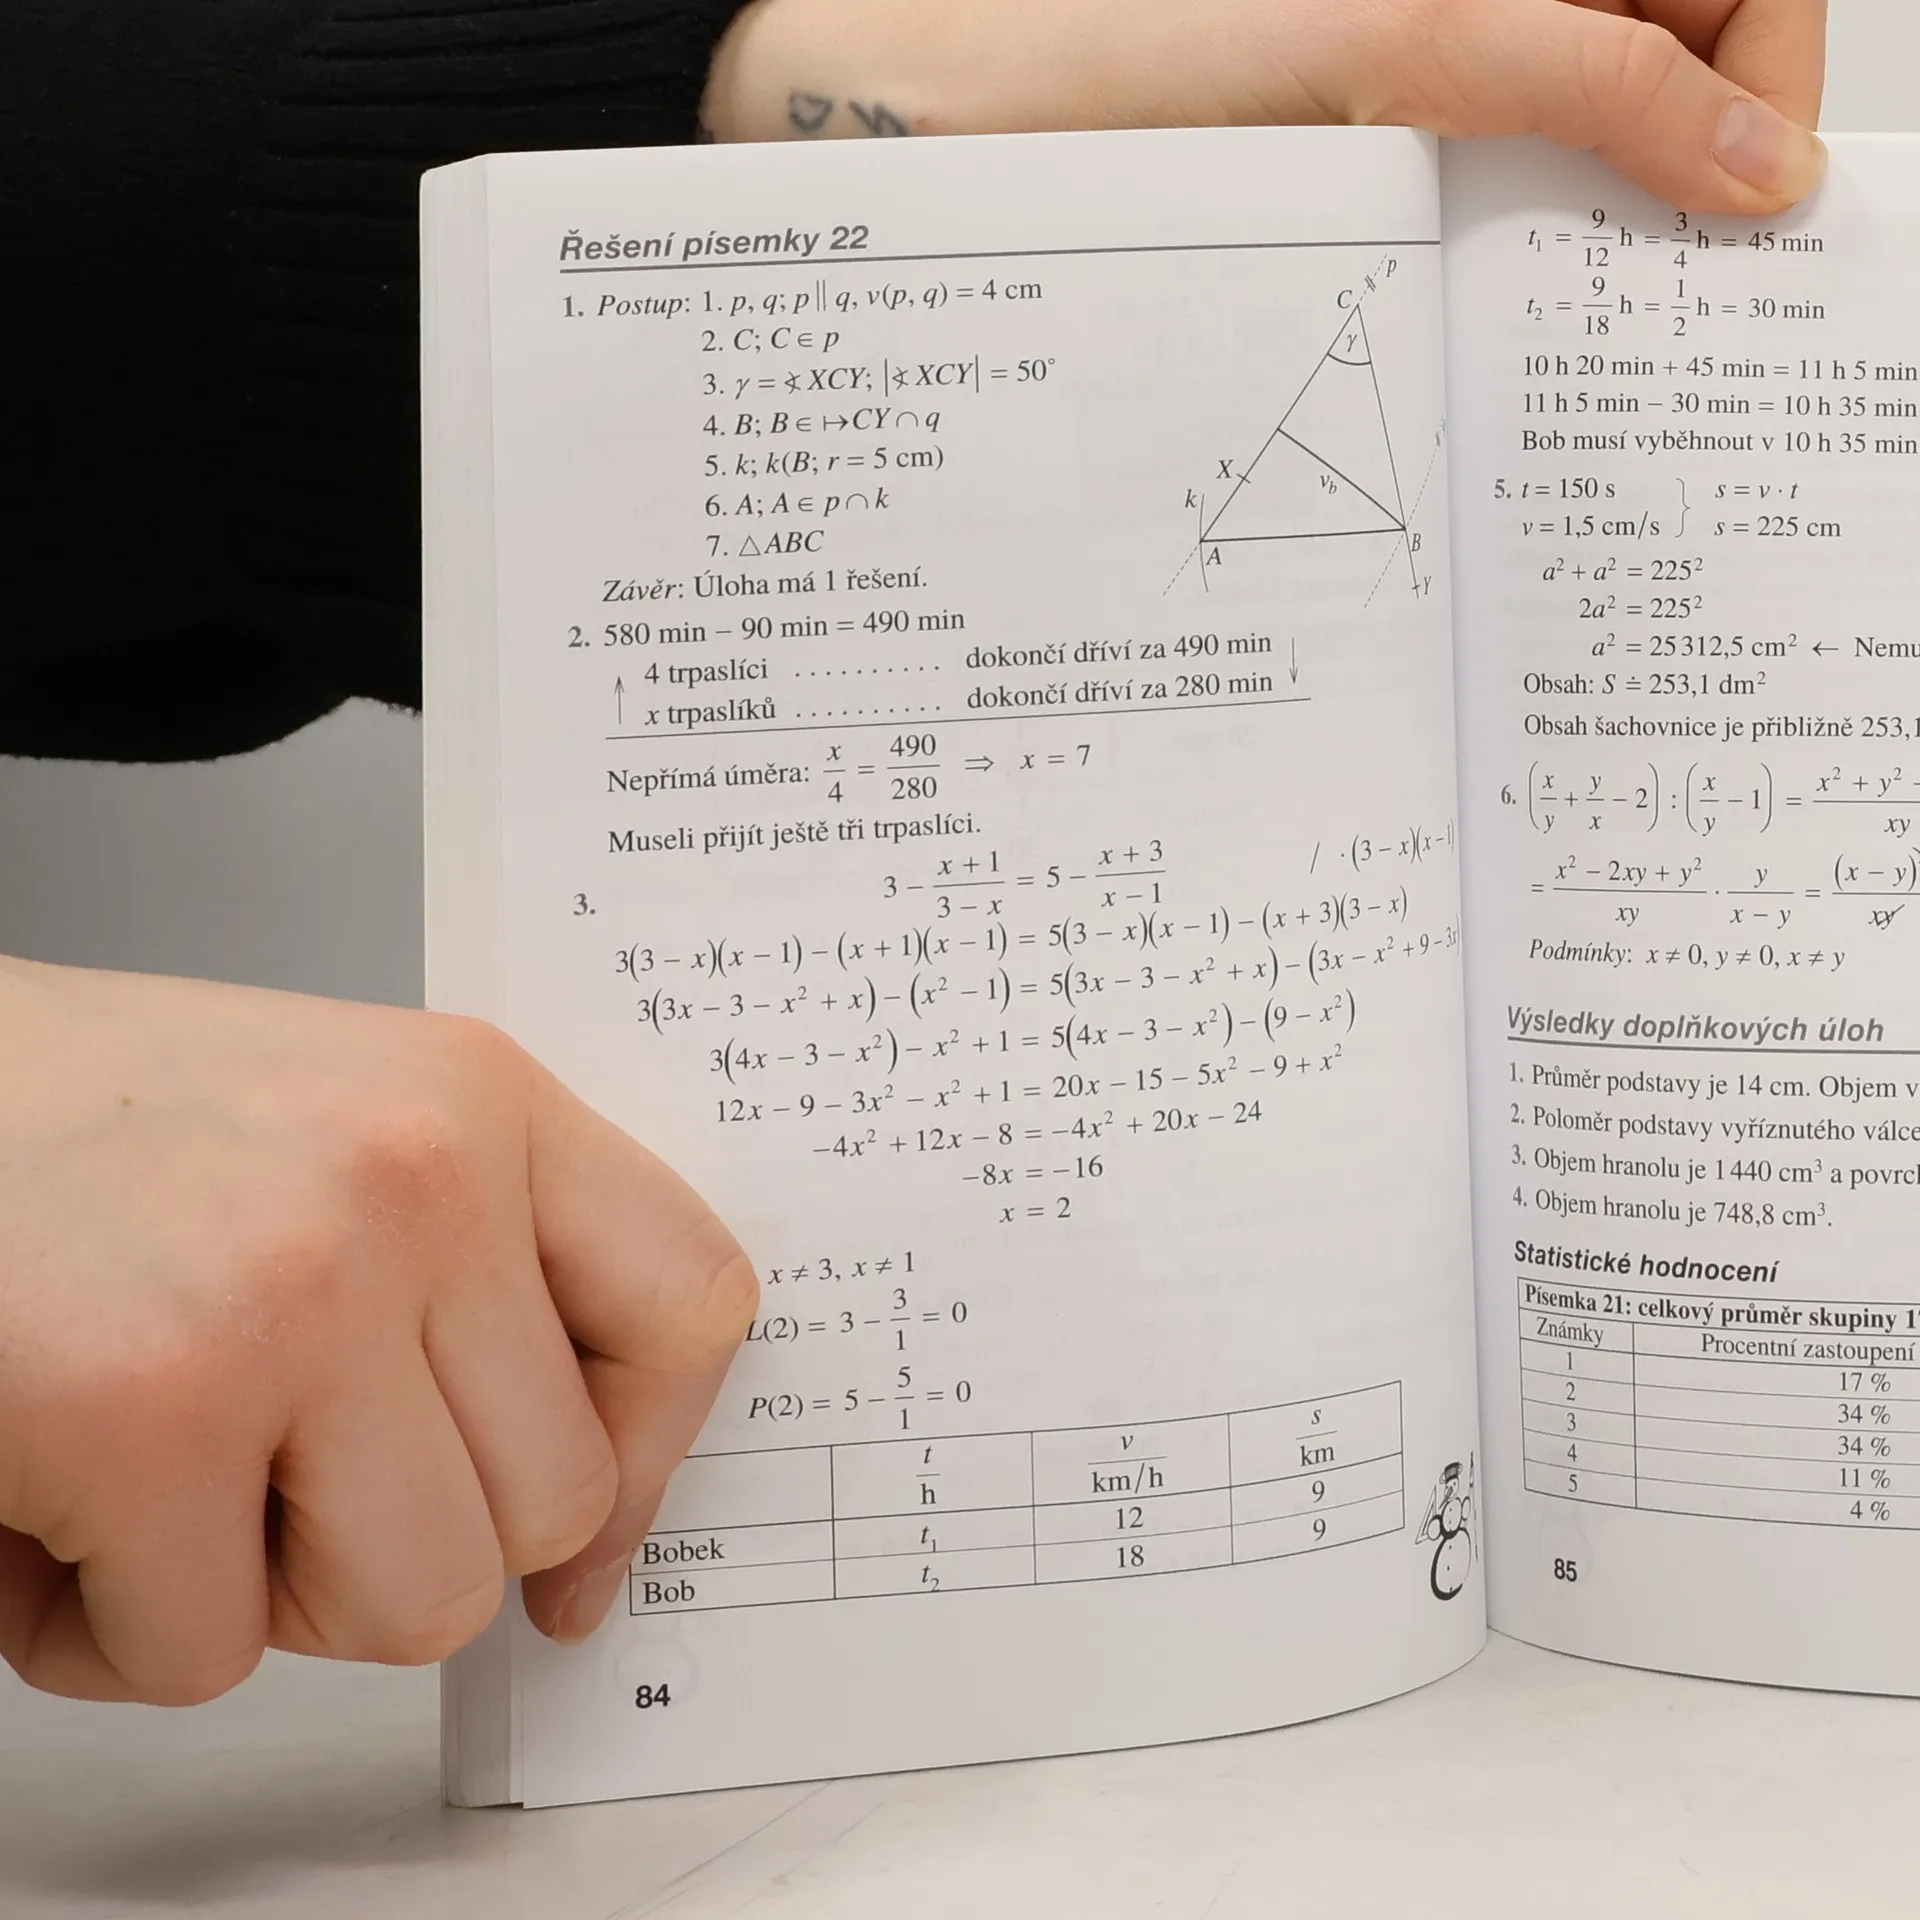 Řešení písemky 22
1. Postup: 1. p, q; p || q, v(p, q) = 4 cm
2. C; C ∈ p
3. γ = ∢XCY; |∢XCY| = 50°
4. B; B ∈ ↦CY ∩ q
5. k; k(B; r = 5 cm)
6. A; A ∈ p ∩ k
7. △ABC
Závěr: Úloha má 1 řešení.
C p
γ
X
v_b
k
A B
Y
2. 580 min – 90 min = 490 min
↑ 4 trpaslíci .......... dokončí dříví za 490 min ↓
x trpaslíků .......... dokončí dříví za 280 min
Nepřímá úměra: x/4 = 490/280 ⇒ x = 7
Museli přijít ještě tři trpaslíci.
3. 3 – (x + 1)/(3 – x) = 5 – (x + 3)/(x – 1) / · (3 – x)(x – 1)
3(3 – x)(x – 1) – (x + 1)(x – 1) = 5(3 – x)(x – 1) – (x + 3)(3 – x)
3(3x – 3 – x² + x) – (x² – 1) = 5(3x – 3 – x² + x) – (3x – x² + 9 – 3x
3(4x – 3 – x²) – x² + 1 = 5(4x – 3 – x²) – (9 – x²)
12x – 9 – 3x² – x² + 1 = 20x – 15 – 5x² – 9 + x²
–4x² + 12x – 8 = –4x² + 20x – 24
–8x = –16
x = 2
x ≠ 3, x ≠ 1
L(2) = 3 – 3/1 = 0
P(2) = 5 – 5/1 = 0
t/h v/km/h s/km
Bobek t₁ 12 9
Bob t₂ 18 9
84
t₁ = 9/12 h = 3/4 h = 45 min
t₂ = 9/18 h = 1/2 h = 30 min
10 h 20 min + 45 min = 11 h 5 min
11 h 5 min – 30 min = 10 h 35 min
Bob musí vyběhnout v 10 h 35 min
5. t = 150 s } s = v · t
v = 1,5 cm/s } s = 225 cm
a² + a² = 225²
2a² = 225²
a² = 25 312,5 cm² ←
Obsah: S ≐ 253,1 dm²
Obsah šachovnice je přibližně 253,1
6. (x/y + y/x – 2) : (x/y – 1) = x² + y² – / xy
= (x² – 2xy + y²)/xy · y/(x – y) = (x – y)/xy
Podmínky: x ≠ 0, y ≠ 0, x ≠ y
Výsledky doplňkových úloh
1. Průměr podstavy je 14 cm. Objem v
2. Poloměr podstavy vyříznutého válce
3. Objem hranolu je 1 440 cm³ a povrch
4. Objem hranolu je 748,8 cm³.
Statistické hodnocení
Písemka 21: celkový průměr skupiny 1
Známky Procentní zastoupení
1 17 %
2 34 %
3 34 %
4 11 %
5 4 %
85